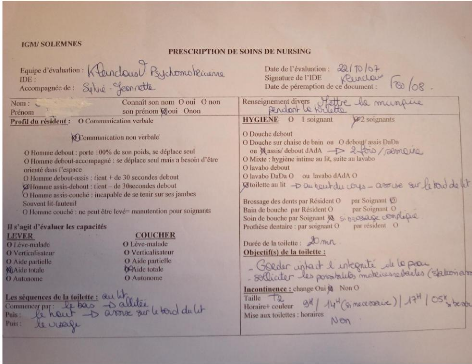 IGM/ SOLEMNES
PRESCRIPTION DE SOINS DE NURSING
Equipe d'évaluation : Psychomotricienne
IDE :
Accompagnée de : Sylvie - Jeannette
Date de l'évaluation : 22/10/07
Signature de l'IDE
Date de péremption de ce document : Fev/08.
Nom :
Prénom
Connaît son nom O oui O non
son prénom oui O nou
Profil du résident : O Communication verbale
Communication non verbale
O Homme debout : porte 100% de son poids, se déplace seul
O Homme debout-accompagné : se déplace seul mais a besoin d'être
orienté dans l'espace
O Homme debout-assis : tient + de 30 secondes debout
Homme assis-debout : tient – de 30secondes debout
O Homme assis-couché : incapable de se tenir sur ses jambes
Souvent lit-fauteuil
O Homme couché : ne peut être levé= manutention pour soignants
Il s'agit d'évaluer les capacités
LEVER COUCHER
O Lève-malade O Lève-malade
O Verticalisateur O Verticalisateur
O Aide partielle O Aide partielle
Aide totale Aide totale
O Autonome O Autonome
Les séquences de la toilette : au lit
Commencer par : le bas → allitée
Puis : le haut → assise sur le bord du lit
Puis : le visage
Renseignement divers Mettre la musique
pendant la toilette
HYGIENE O 1 soignant 2 soignants
O Douche debout
O Douche sur chaise de bain ou O debout/ assis DaDo
O assis/ debout dAdA → 2 fois/semaine
O Mixte : hygiène intime au lit, suite au lavabo
O lavabo debout
O lavabo DaDo O ou lavabo dAdA O
toilette au lit → assise sur le bord du lit
Brossage des dents par Résident O par Soignant
Bain de bouche par Résident O par Soignant O
Soin de bouche par Soignant
Prothèse dentaire : par soignant O par résident O
Durée de la toilette : 20 mn
Objectif(s) de la toilette :
- Garder intact l'intégrité de la peau
- solliciter les possibilités motrices
Incontinence : change Oui Non O
Taille
Horaire+ couleur
Mise aux toilettes : horaires
Non